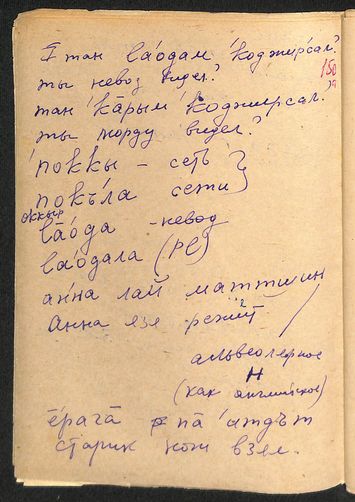 I тан ла́одам коджирсал?
ты невод видел?
150
тан ка̄рым коджирсал?
ты морду видел?
поккы – сеть
покъ́ла сети
оккыр
ла́ода – невод
ла́одала (pl)
анна лай маттшин
Анна язя режит
альвеолярное
н
(как английское)
е̄рага̄ па аждъ̄т
старик нож взял.